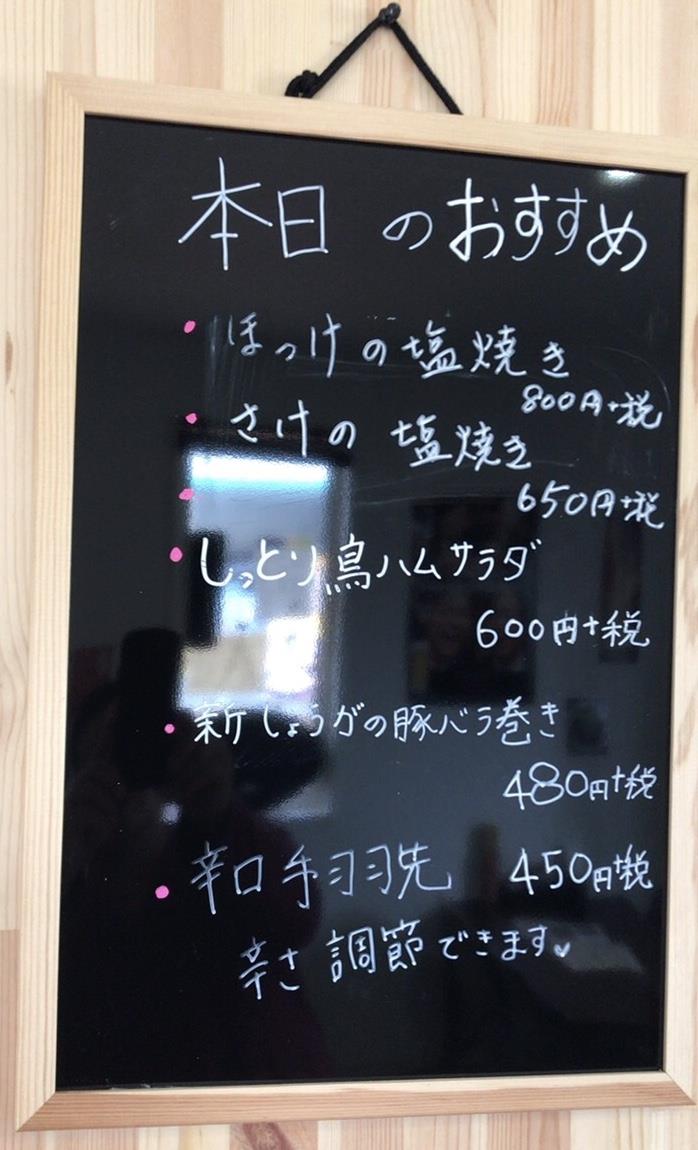 本日のおすすめ
・ほっけの塩焼き
800円+税
・さけの 塩焼き
650円+税
・しっとり鳥ハムサラダ
600円+税
・新しょうがの豚バラ巻き
480円+税
・辛口手羽先 450円+税
辛さ調節できます♡